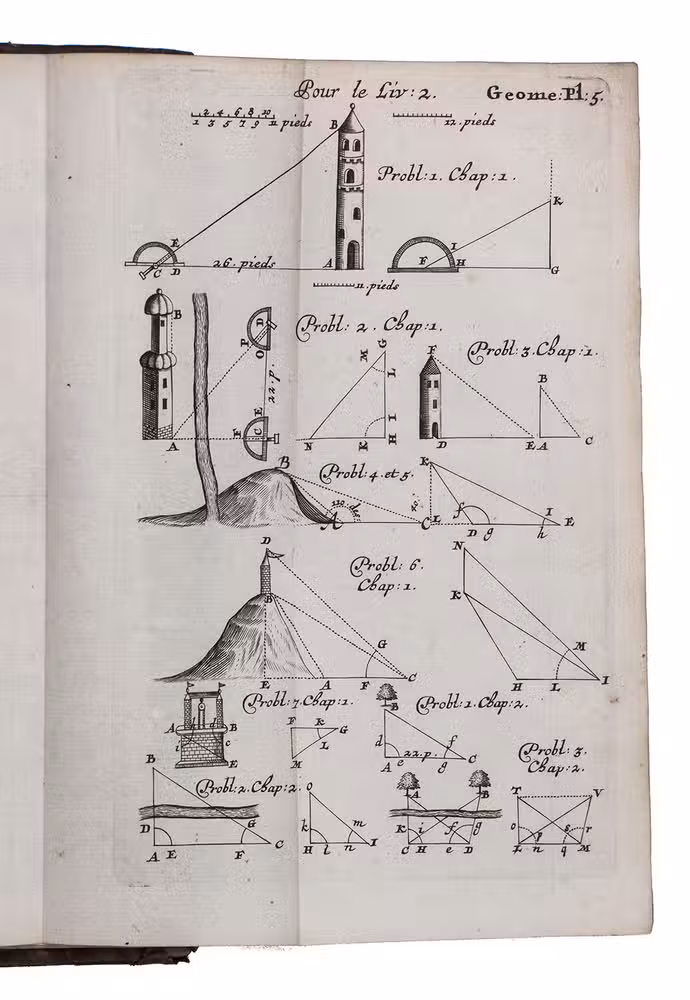 Pour le Liv: 2. Geome: Pl: 5.
2 4 6 8 10
1 3 5 7 9 11 pieds
12. pieds
B
Probl: 1. Chap: 1.
K
E
I
C D 26. pieds A
F H
G
11. pieds
B
D
P
O
Probl: 2. Chap: 1.
G
M
L
22. p.
E
F C
A
I
K
N H
Probl: 3. Chap: 1.
F
B
D E A C
B
Probl: 4. et 5.
120 des.
A C
K
f I
L D g h E
D
Probl: 6.
Chap: 1.
B
G
E A F C
N
K
M
H L I
Probl: 7. Chap: 1.
A B
i c
E
F K G
L
M
Probl: 1. Chap: 2.
B
d f
A e 22. p. g C
Probl: 3.
Chap: 2.
Probl: 2. Chap: 2.
B
D G
A E F C
O
k m
H l n I
A B
K i f g
C H e D
T V
o p s r
L n q M